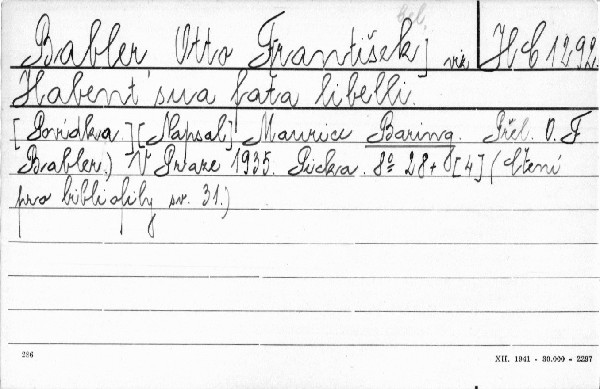 Babler Otto František] viz HC 1292
Habent sua fata libelli.
[Povídka.] [Napsal] Maurice Baring. Přel. O. F.
Babler.) V Praze 1935. Picka. 8º 28 + [4] (Čtení
pro bibliofily sv. 31.)
286 XII. 1941 - 30.000 - 2287